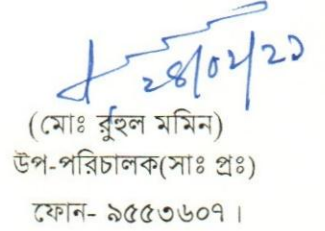 ২৪/০২/২১
(মোঃ রুহুল মমিন)
উপ-পরিচালক(সাঃ প্রঃ)
ফোন- ৯৫৫৩৬০৭।